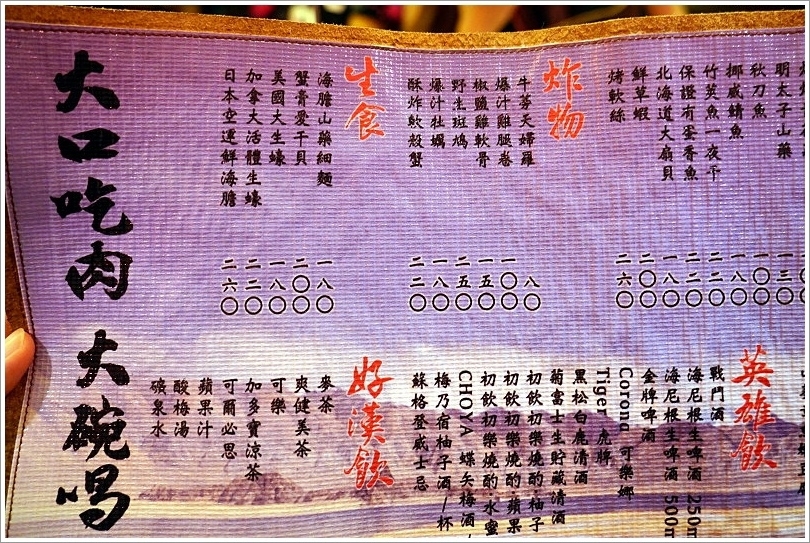 明太子山藥 一三〇
秋刀魚 一〇〇
挪威鯖魚 一八〇
竹筴魚一夜干 二二〇
保證有蛋香魚 二〇〇
北海道大扇貝 一八〇
鮮草蝦 一〇〇
烤軟絲 二六〇
炸物
牛蒡天婦羅 八〇
爆汁雞腿卷 一〇〇
椒鹽雞軟骨 一五〇
野生斑鳩 二五〇
爆汁牡蠣 一八〇
酥炸軟殼蟹 二二〇
生食
海膽山藥細麵 一八〇
蟹膏愛干貝 二〇〇
美國大生蠔 一八〇
加拿大活體生蠔 二二〇
日本空運鮮海膽 二六〇
英雄飲
戰鬥酒
海尼根生啤酒 250m
海尼根生啤酒 500m
金牌啤酒
Corona 可樂娜
Tiger 虎牌
黑松白鹿清酒
菊富士生貯藏清酒
初飲初樂燒酌·柚子
初飲初樂燒酌·蘋果
初飲初樂燒酌·水蜜
CHOYA 蝶矢梅酒/
梅乃宿柚子酒/杯
蘇格登威士忌
好漢飲
麥茶
爽健美茶
可樂
加多寶涼茶
可爾必思
蘋果汁
酸梅湯
礦泉水
大口吃肉 大碗喝